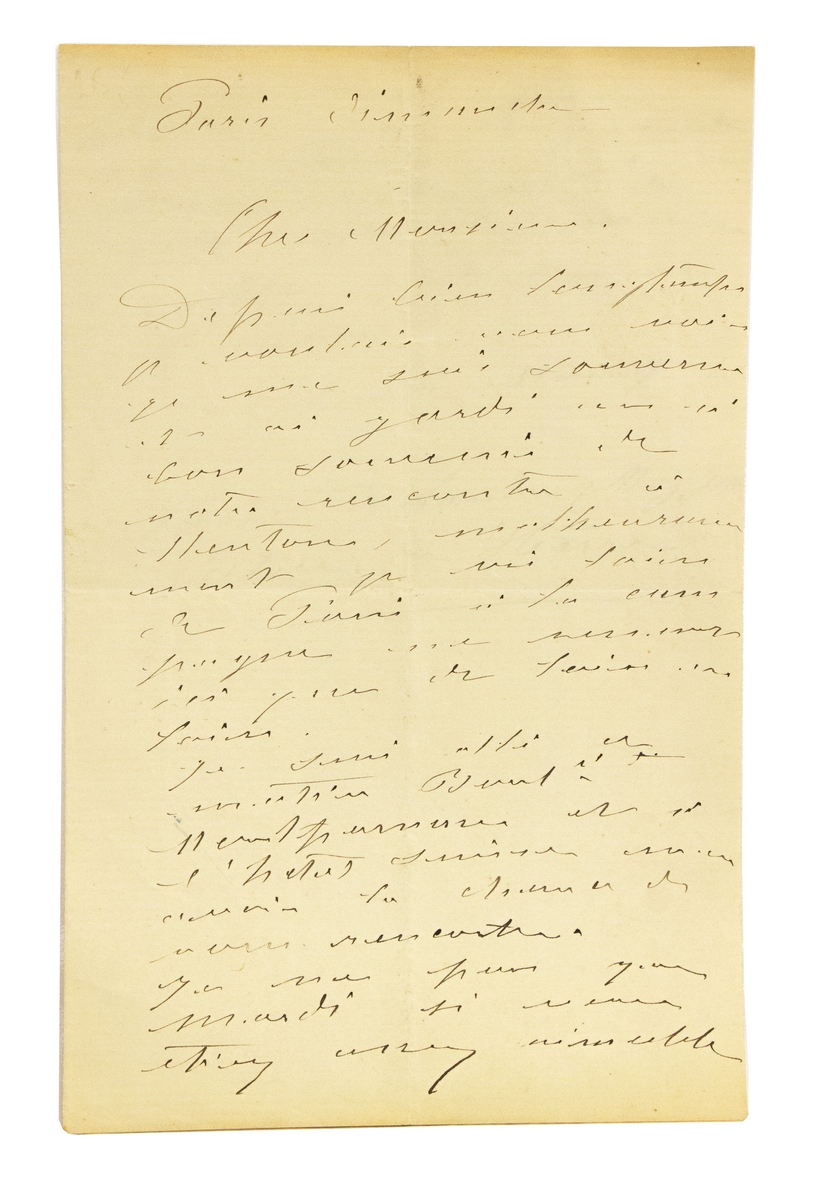 Paris Dimanche
Cher Monsieur.
Depuis bien longtemps
je voulais vous voir
je me suis souvenu
et ai gardé un si
bon souvenir de
notre rencontre à
Menton, malheureuse
ment je vis loin
de Paris à la cam
pagne ne venant
ici que de loin en
loin.
Je suis allé ce
matin Boul
Montparnasse et à
l'hôtel Suisse sans
avoir la chance de
vous rencontrer.
Je ne pars que
mardi si vous
étiez assez aimable